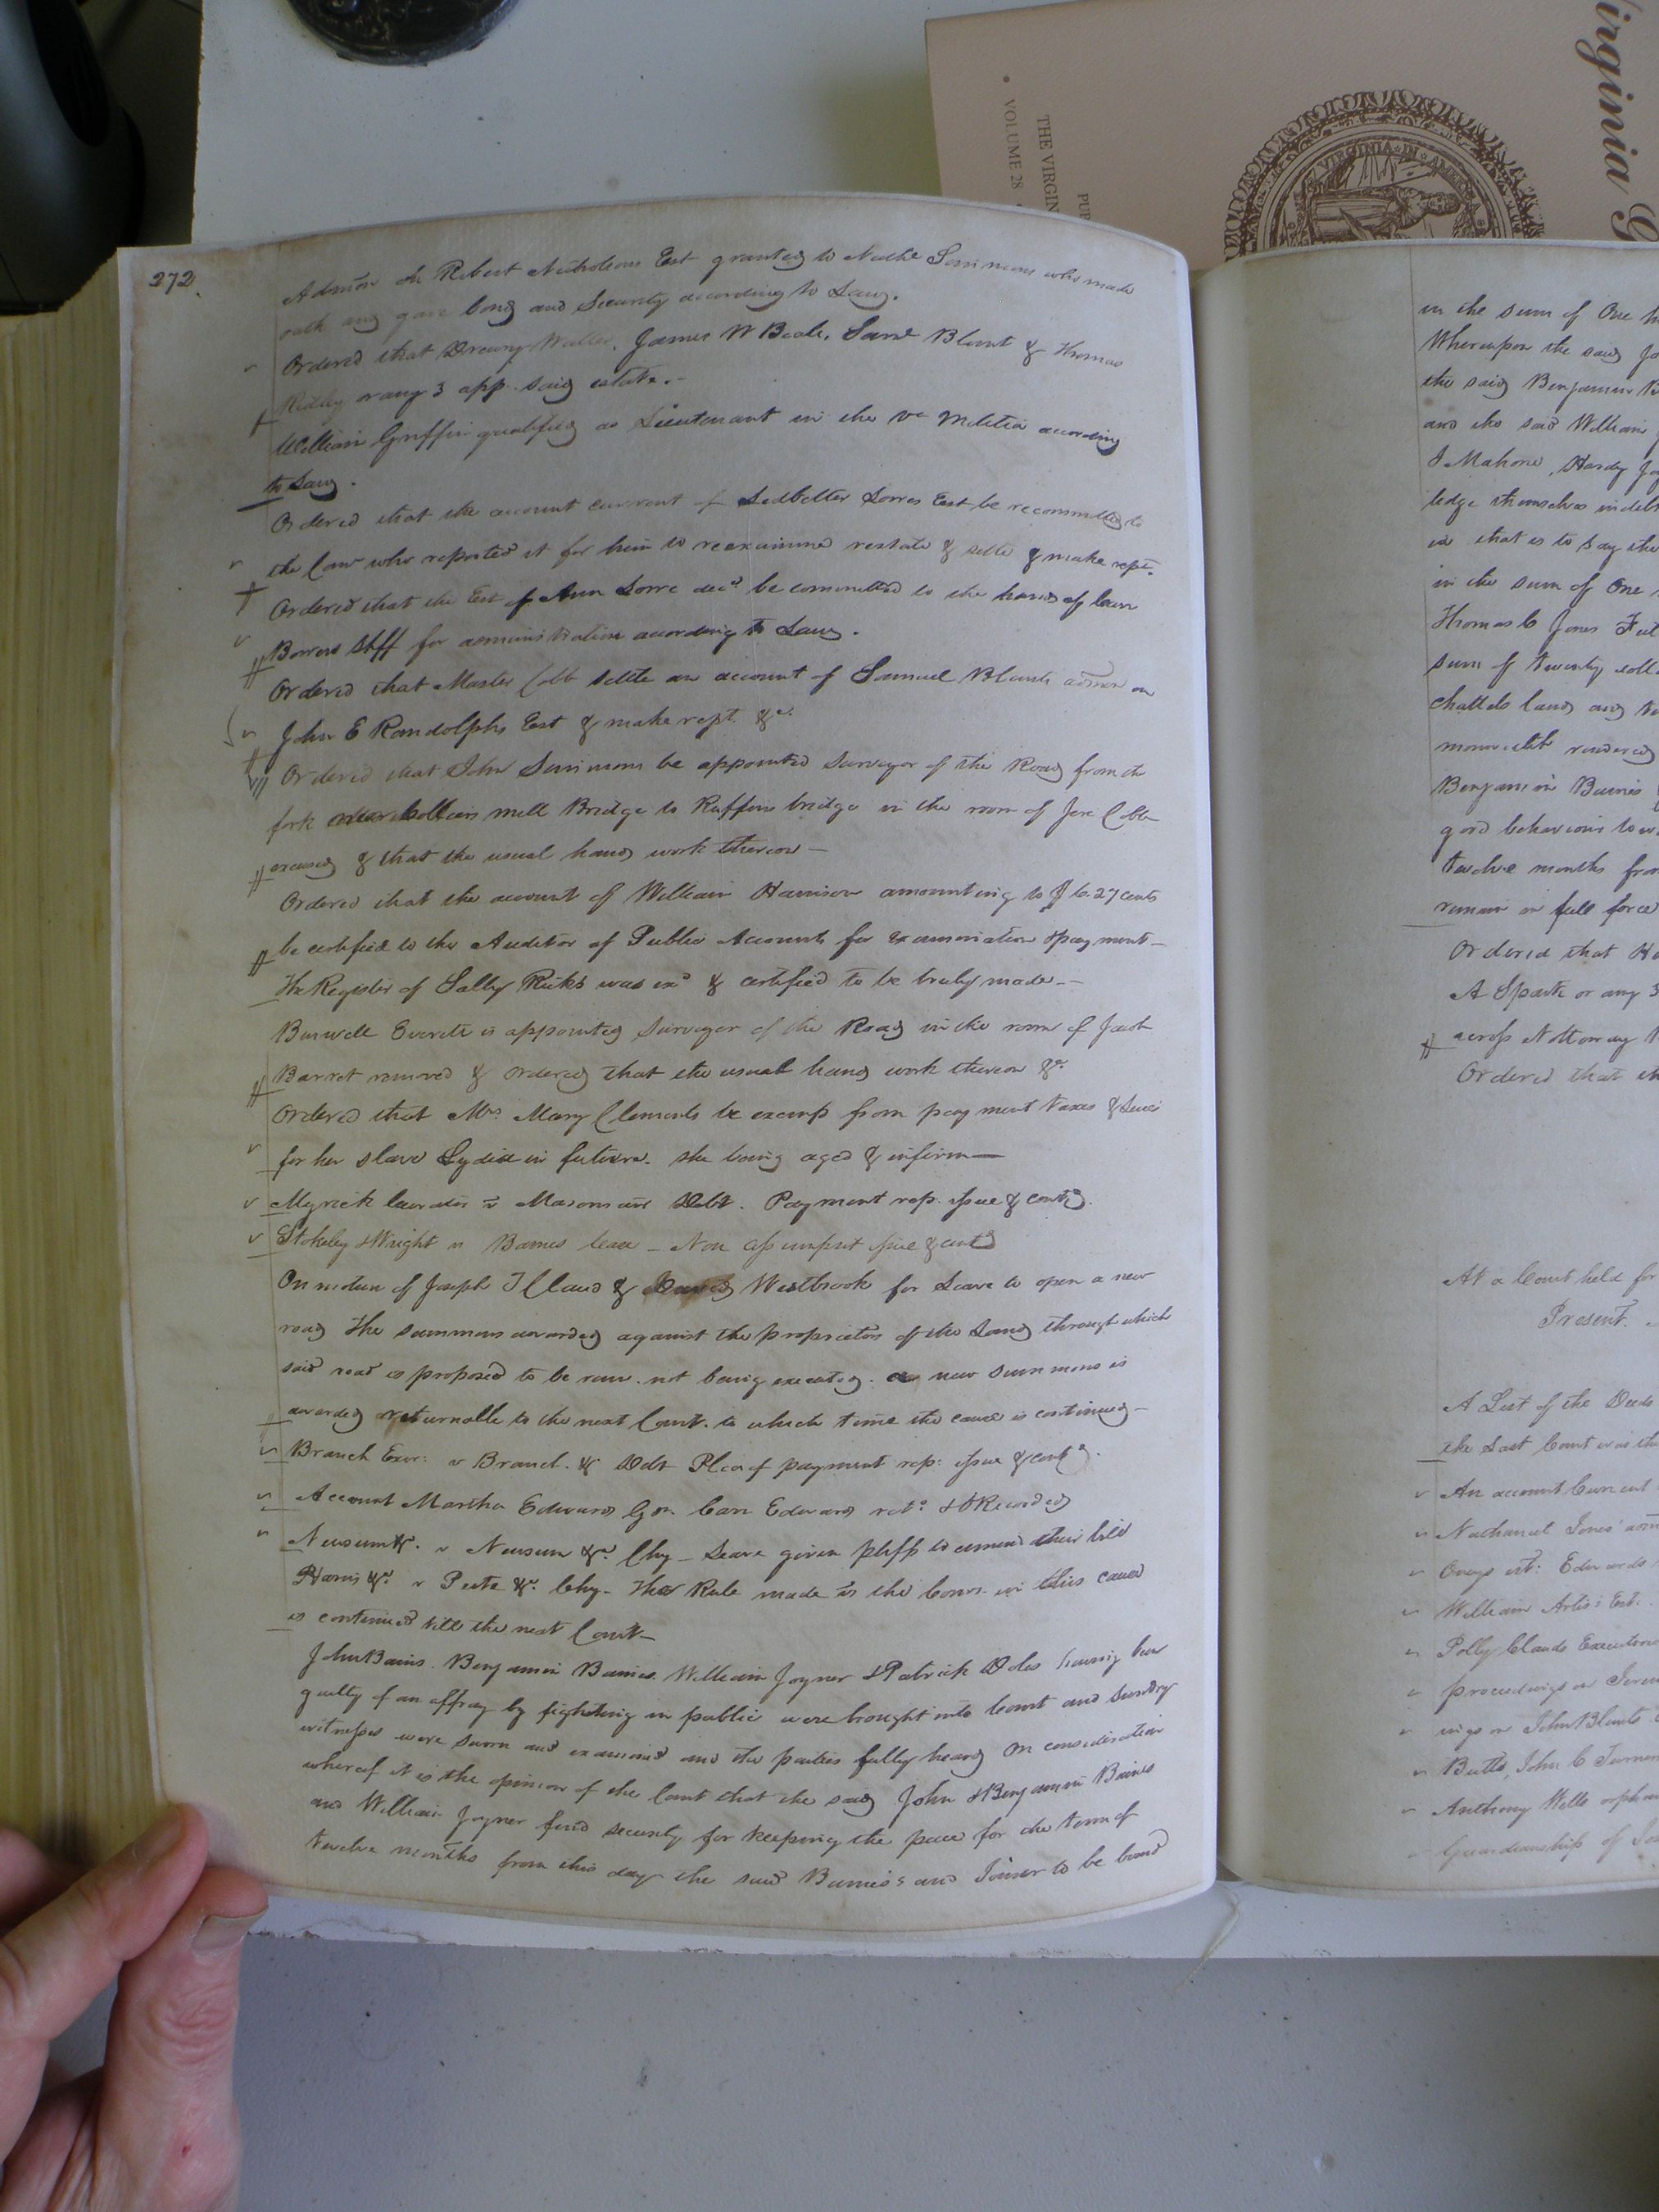 Virginia G
THE VIRGIN
PUB
VOLUME 28
VIRGINIA IN AMER
272.
Admōn on Robert Nicholsons Est granted to Nathl Simmons who made
oath and gave bond and Security according to Law.
Ordered that Drewry Waller, James W Beale, Saml Blunt & Thomas
Ridley or any 3 app. said estate.-
William Griffin qualified as Lieutenant in the Va Militia according
to Law.
Ordered that the account current of Ledbetter Lowes Est be recommitted to
the Comr who reported it for him to reexamine restate & settle & make rept.
Ordered that the Est of Ann Lowe decd be committed to the hands of Carr
Bowers Shff for administration according to Law.
Ordered that Master Cobb settle an account of Samuel Blunts admōn on
John E Randolphs Est & make rept &c.
Ordered that John Simmons be appointed Surveyor of the Road from the
fork near mill Bridge to Ruffins bridge in the room of Jere Cobb
excused & that the usual hands work thereon -
Ordered that the account of William Harrison amounting to $ 6.27 cents
be certified to the Auditor of Public Accounts for examination & payment -
The Register of Sally Ricks was exd & certified to be truly made -
Burwell Everett is appointed Surveyor of the Road in the room of Jacob
Barret removed & ordered that the usual hands work thereon &c
Ordered that Mrs. Mary Clements be exempt from payment taxes & Levies
for her slave Lydia in future. she being aged & infirm -
Myrick v Mason Debt. Payment rep. issue & contd.
Stokeley & Wright v Barnes Case - Non assumpsit issue & contd
On motion of Joseph T Claud & David Westbrook for Leave to open a new
road The summons awarded against the proprietors of the Land through which
said road is proposed to be run. not being executed. a new summons is
awarded returnable to the next Court. to which time the cause is continued -
Branch Exor: v Branch. &c Debt Plea of payment rep: issue & contd.
Account Martha Edwards Gdn. Carr Edwards retd & ORecorded
Newsum &c. v Newsum &c. Chy - Leave given pltffs to amend their bill
Harris &c. v Pete &c. Chy - The Rule made to the Comr. in this cause
is continued till the next Court -
John Baines. Benjamin Baines William Joyner & Patrick Doles having been
guilty of an affray by fighting in public were brought into Court and Sundry
witnesses were sworn and examined and the parties fully heard On consideration
whereof it is the opinion of the Court that the said John & Benjamin Baines
and William Joyner find security for keeping the peace for the term of
twelve months from this day the said Baines's and Joiner to be bound
in the sum of One
Whereupon the said
the said Benjamin B
and the said William
J Mahone, Hardy
ledge themselves indebt
in that is to say the
in the sum of One
Thomas C Jones
sum of twenty
chattels lands and
rendered
Benjamin Baines
good behaviour
twelve months from
remain in full force
Ordered that
A Spark or any 3
across Nottoway
Ordered that
At a Court held for
Present.
A List of the Deeds
the Last Court was
An account Current
Nathaniel Jones
est: Edwards
William Artis's Est:
Polly Clauds Executors
proceedings on
ings on John Blunts
Butts, John C Turner
Anthony Wells orphan
Guardianship of